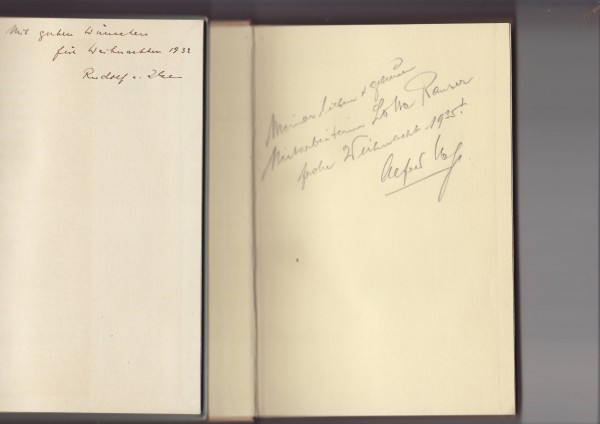 Mit guten Wünschen
für Weihnachten 1932
Rudolf u. Ilse
Meiner lieben & 
Mitarbeiterin Lotka Rauser
frohe Weihnacht 1935!
Alfred